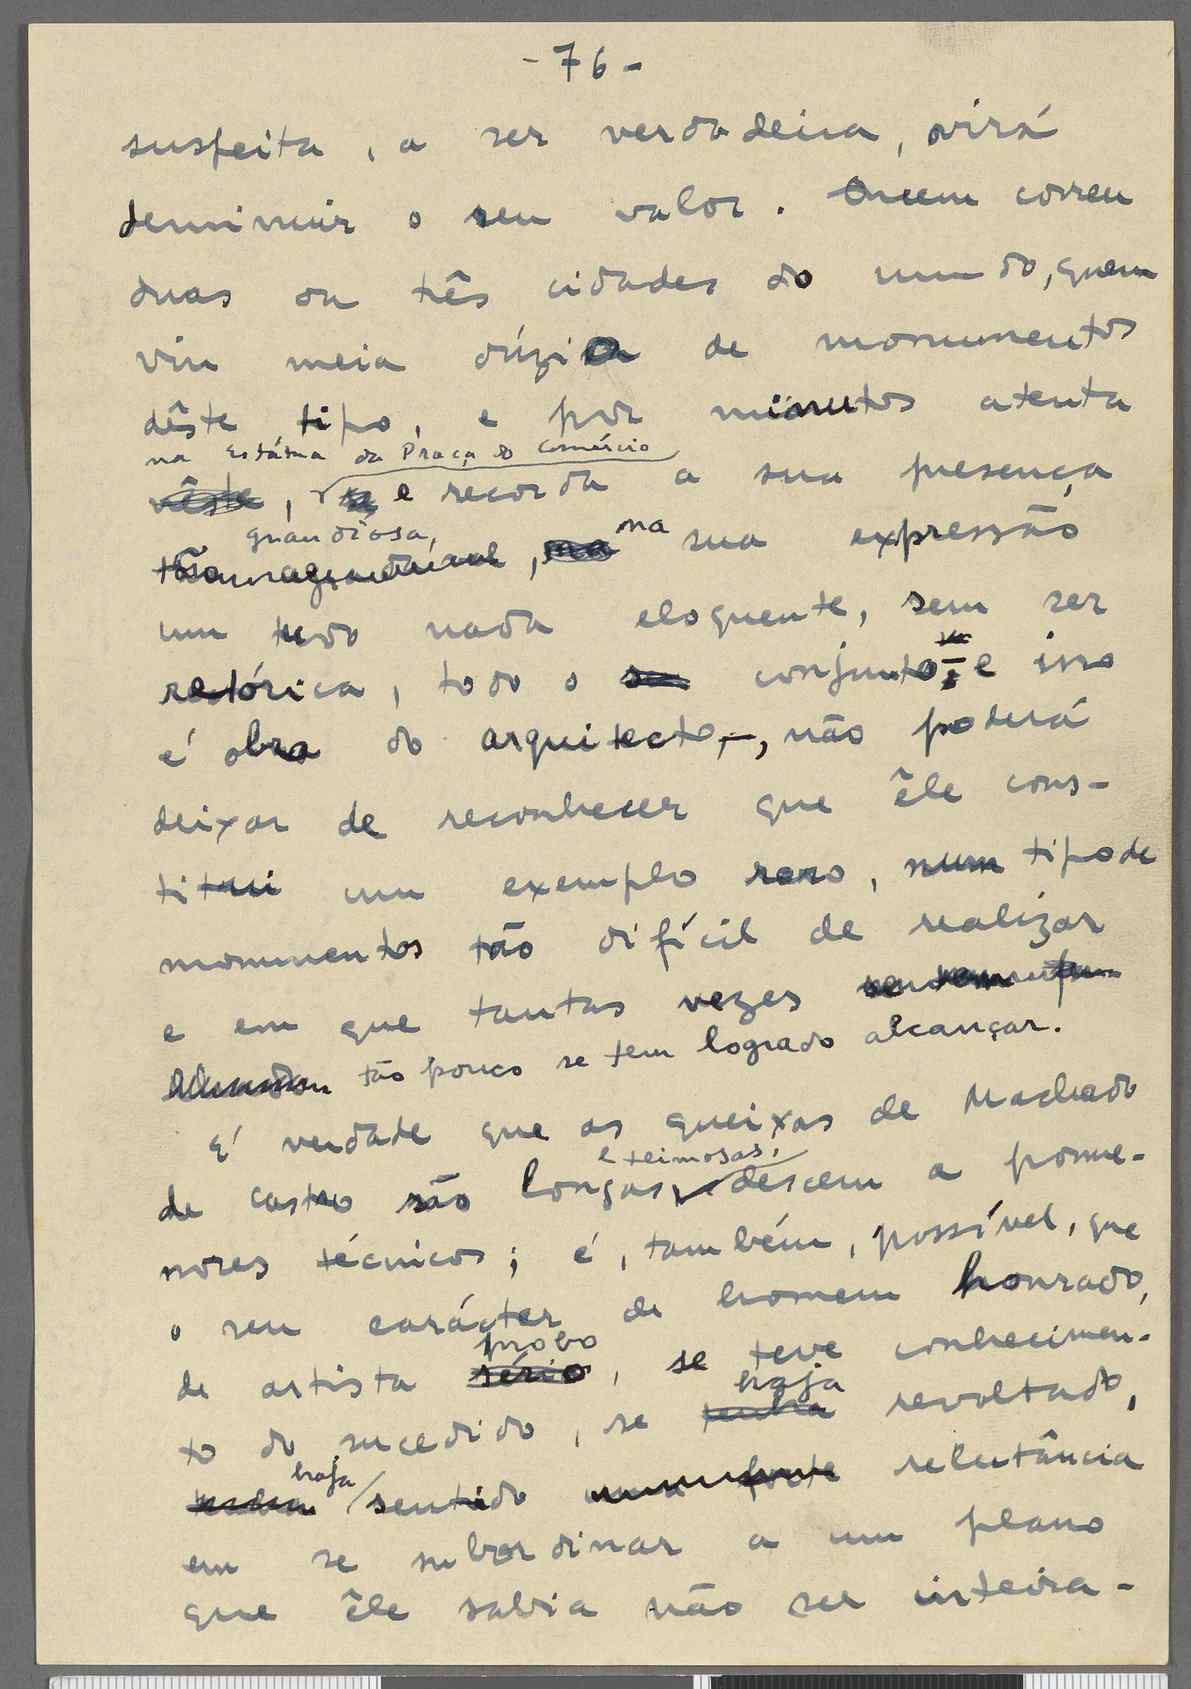 -76-
suspeita, a ser verdadeira, virá
deminuir o seu valor. Quem correu
duas ou três cidades do mundo, quem
viu meia dúzia de monumentos
dêste tipo, e por minutos atenta
na Estátua da Praça do Comércio
nêste, e recorda a sua presença
grandiosa,
, na sua expressão
um tudo nada eloquente, sem ser
retórica, todo o seu conjunto — e isso
é obra do arquitecto —, não poderá
deixar de reconhecer que êle cons-
titui um exemplo raro, num tipo de
monumentos tão difícil de realizar
e em que tantas vezes
tão pouco se tem logrado alcançar.
É verdade que as queixas de Machado
e teimosas,
de Castro são longas, descem a porme-
nores técnicos; é, também, possível, que
o seu carácter de homem honrado,
probo
de artista sério, se teve conhecimen-
haja
to do sucedido, se tenha revoltado,
haja
tenha sentido uma forte relutância
em se subordinar a um plano
que êle sabia não ser inteira-